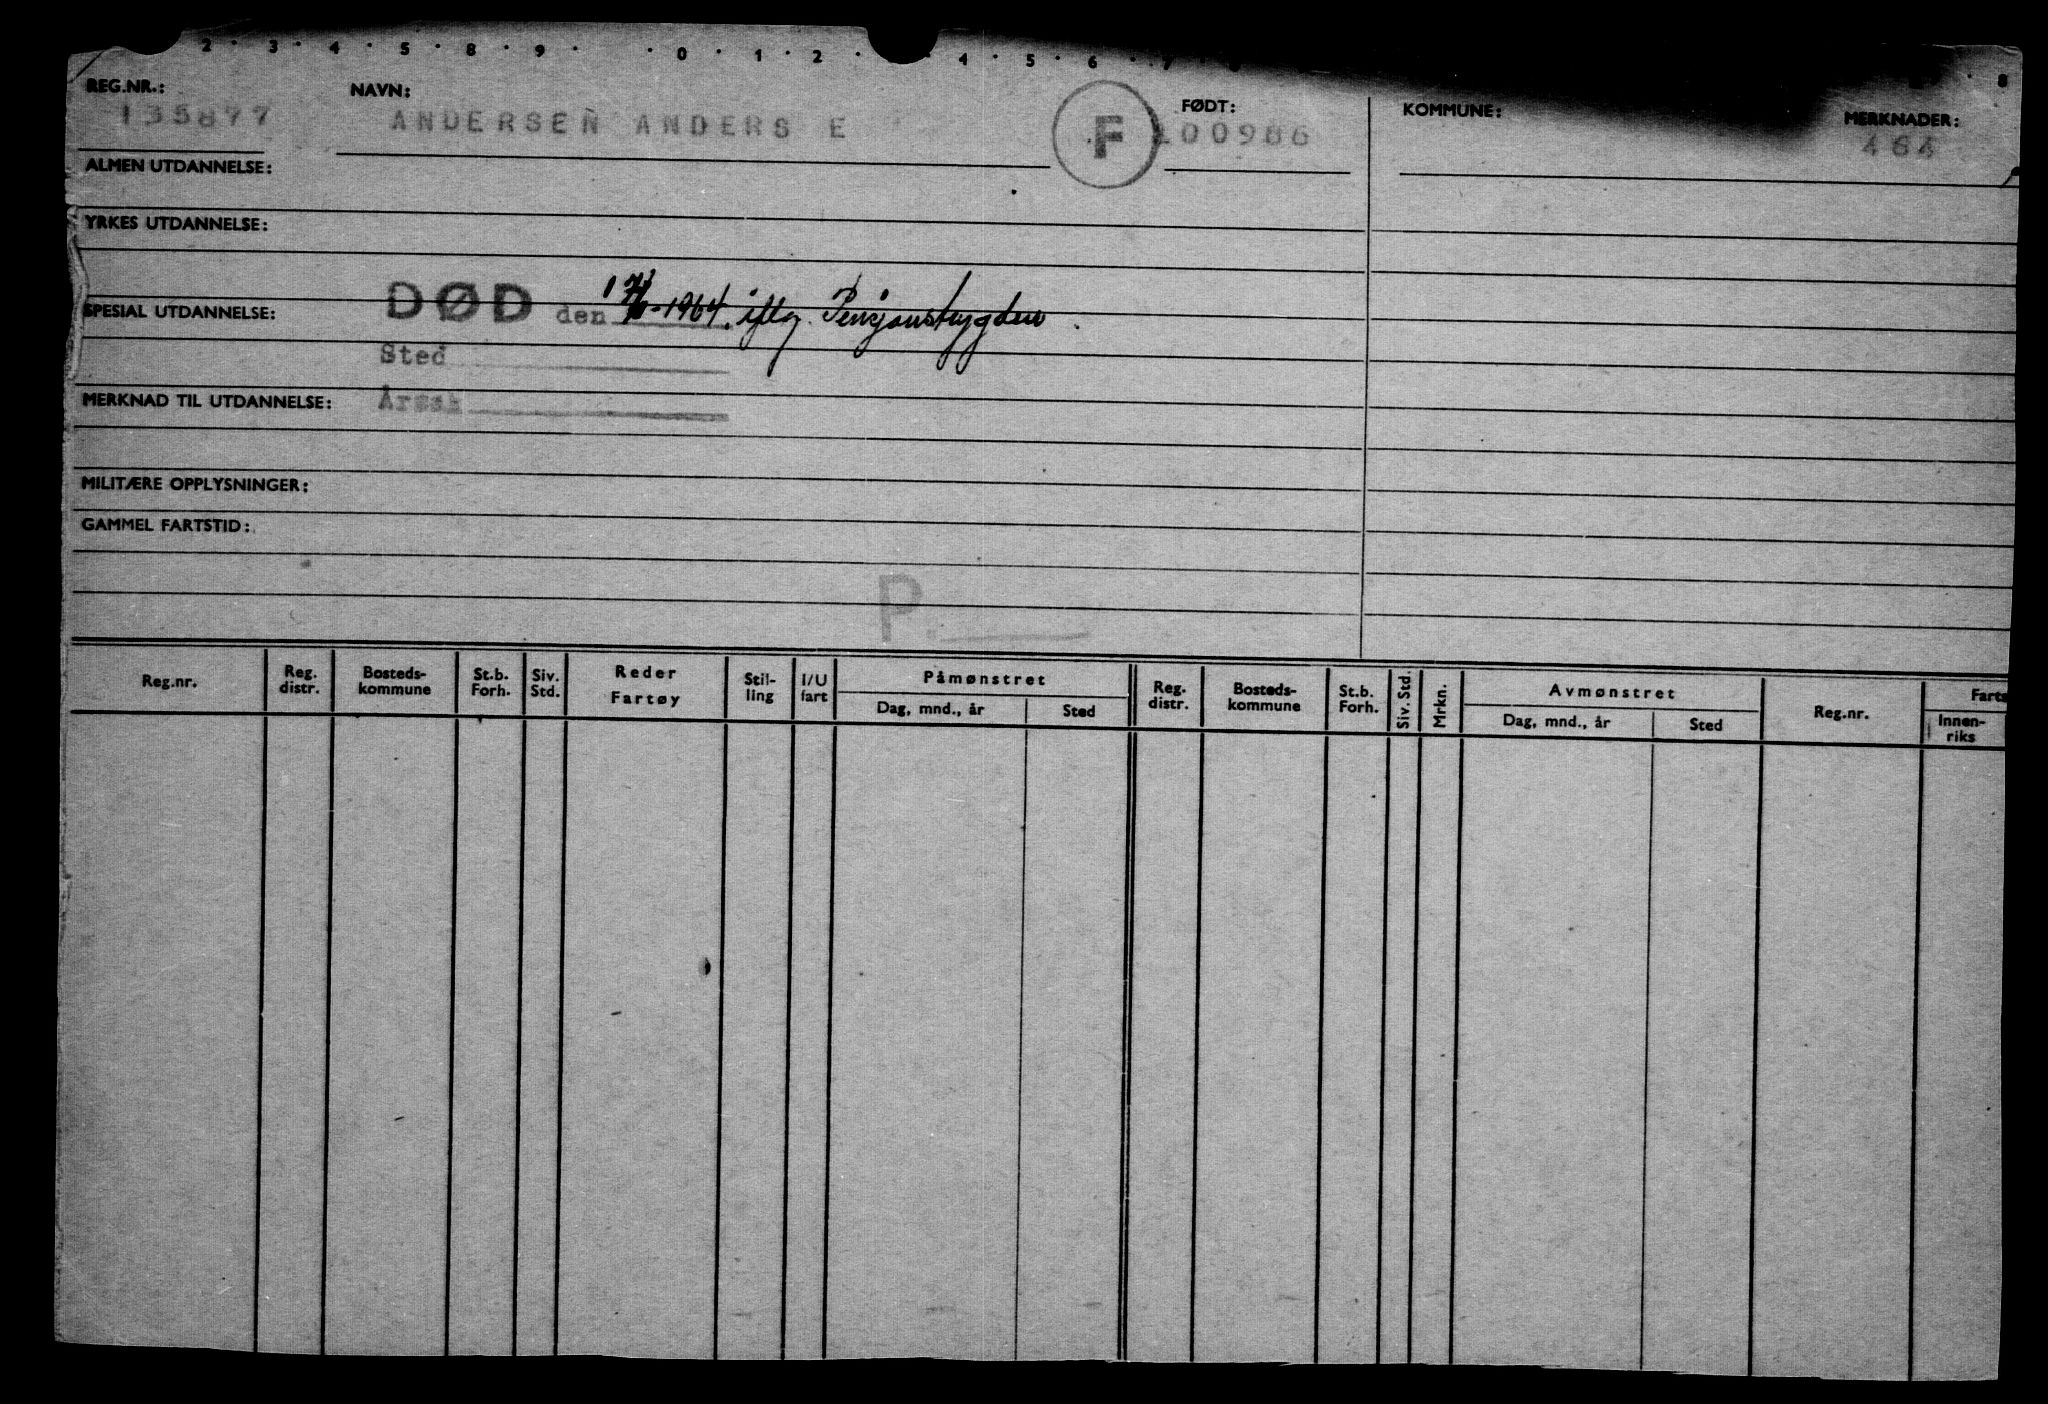 2 · 3 · 4 · 5 · 8 · 9 · · 0 · 1 · 2 · 4 · 5 · 6 · 7 · 8
REG.NR.: NAVN: FØDT: KOMMUNE: MERKNADER:
135877 ANDERSEN ANDERS E F 100986 464
ALMEN UTDANNELSE:
YRKES UTDANNELSE:
SPESIAL UTDANNELSE: DØD den -1964. iflg. Pensjonstrygden.
Sted
MERKNAD TIL UTDANNELSE: Årsak
MILITÆRE OPPLYSNINGER:
GAMMEL FARTSTID:
P.
Reg.nr. Reg. distr. Bosteds-kommune St.b. Forh. Siv. Std. Reder Fartøy Stil-ling I/U fart Påmønstret Dag, mnd., år Sted Reg. distr. Bosteds-kommune St.b. Forh. Siv. Std. Mrkn. Avmønstret Dag, mnd., år Sted Reg.nr. Farts Innen-riks